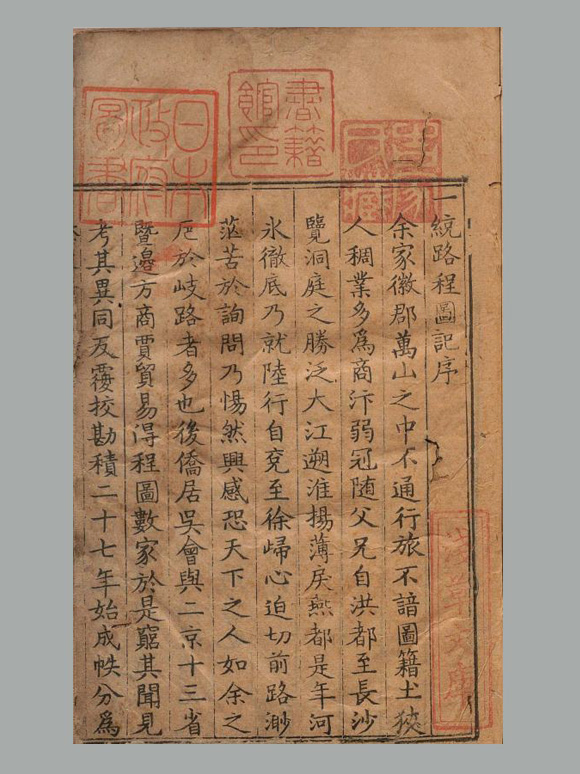 一統路程圖記序
余家徽郡萬山之中不通行旅不諳圖籍土狹
人稠業多爲商汴弱冠随父兄自洪都至長沙
覽洞庭之勝泛大江遡淮揚薄戾燕都是年河
氷徹底乃就陸行自兗至徐歸心迫切前路渺
茫苦於詢問乃惕然興感恐天下之人如余之
厄於岐路者多也後僑居吳會與二京十三省
暨邊方商賈貿易得程圖數家於是窮其聞見
考其異同反覆挍勘積二十七年始成帙分爲
書籍館印
日本政府圖書
淺草文庫